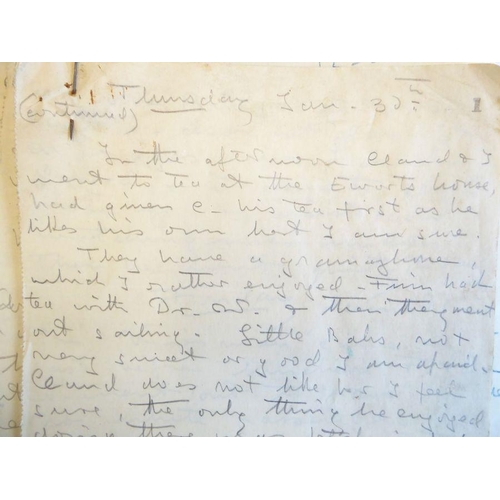 Thursday Jan. 30th 1
(continued)
In the afternoon Claud & I
went to tea at the Eworts house
had given C - his tea first as he
likes his own best I am sure.
They have a gramaphone,
which I rather enjoyed - Finn had
tea with Dr. W. & then they went
out sailing. Little Babs, not
very sweet or good I am afraid -
Claud does not like her I feel
sure, the only thing he enjoyed